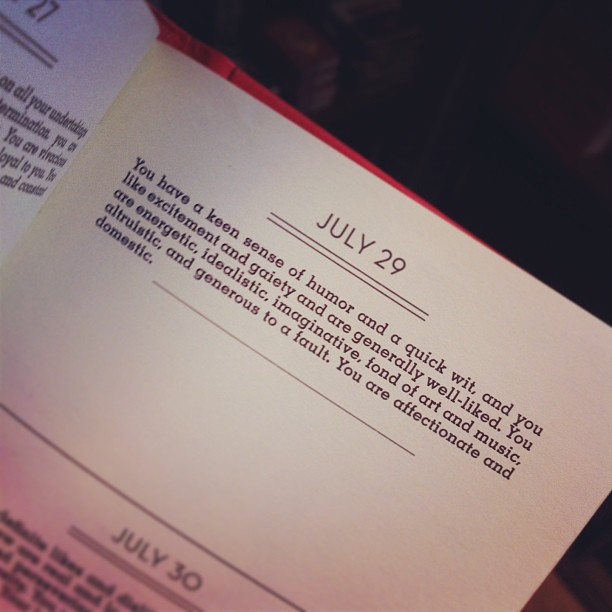 27
on all your undertakings
determination, you
You are vivacious
loyal to you.
and constant
JULY 29
You have a keen sense of humor and a quick wit, and you
like excitement and gaiety and are generally well-liked. You
are energetic, idealistic, imaginative, fond of art and music,
altruistic, and generous to a fault. You are affectionate and
domestic.
JULY 30